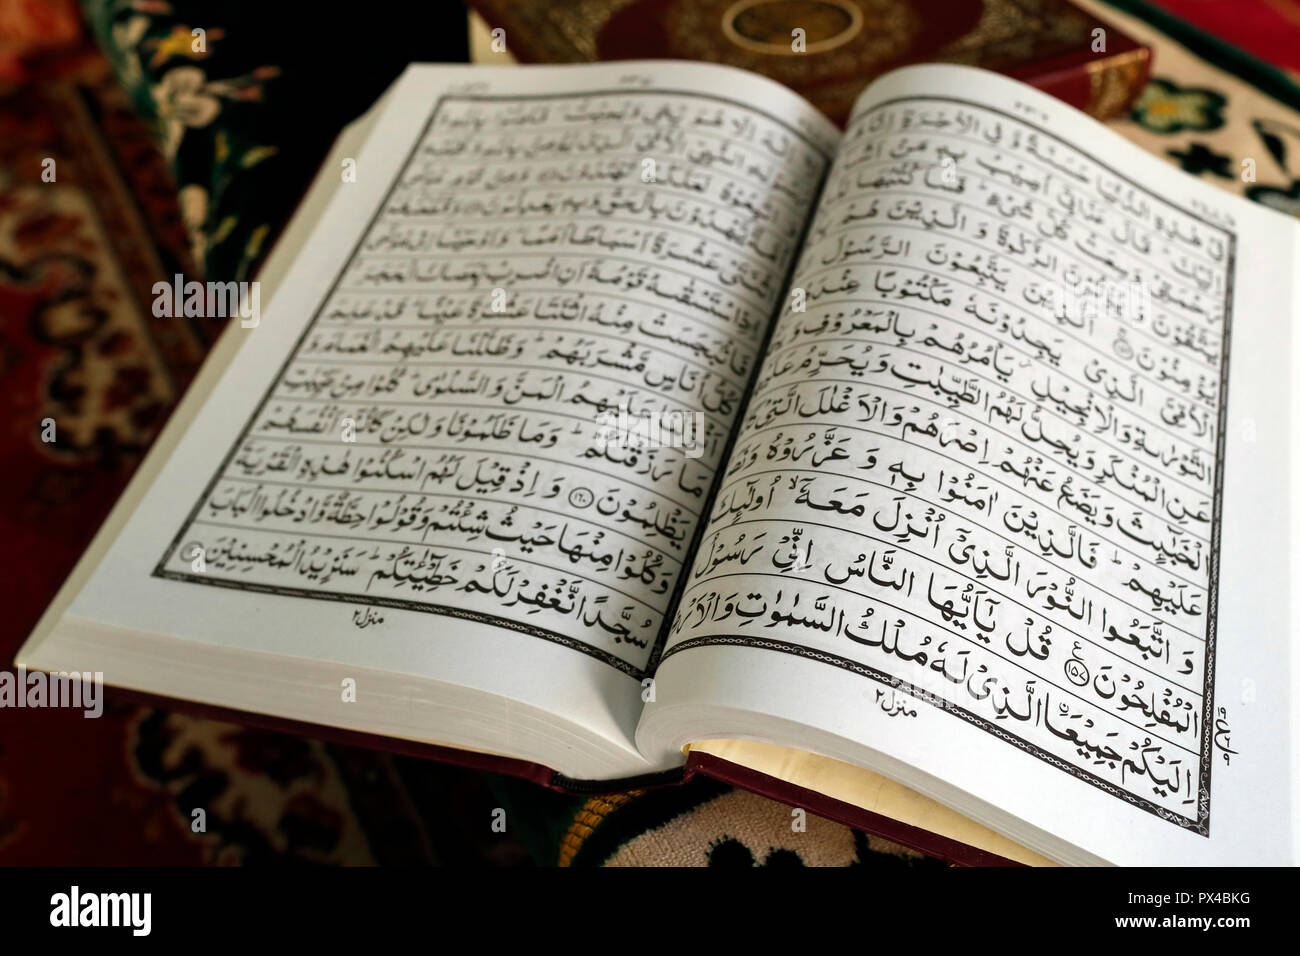 فِيْ هٰذِهِ الدُّنْيَا حَسَنَةً وَّ فِي الْاٰخِرَةِ اِنَّا
اِلَيْكَ ؕ قَالَ عَذَابِيْۤ اُصِيْبُ بِهٖ مَنْ
رَحْمَتِيْ وَسِعَتْ كُلَّ شَيْءٍ ؕ فَسَاَكْتُبُهَا
يَتَّقُوْنَ وَ يُؤْتُوْنَ الزَّكٰوةَ وَ الَّذِيْنَ هُمْ
يُؤْمِنُوْنَ ۝ اَلَّذِيْنَ يَتَّبِعُوْنَ الرَّسُوْلَ
الْاُمِّيَّ الَّذِيْ يَجِدُوْنَهٗ مَكْتُوْبًا
التَّوْرٰىةِ وَ الْاِنْجِيْلِ ؗ يَاْمُرُهُمْ بِالْمَعْرُوْفِ
عَنِ الْمُنْكَرِ وَ يُحِلُّ لَهُمُ الطَّيِّبٰتِ وَ يُحَرِّمُ
الْخَبٰٓئِثَ وَ يَضَعُ عَنْهُمْ اِصْرَهُمْ وَ الْاَغْلٰلَ الَّتِيْ
عَلَيْهِمْ ؕ فَالَّذِيْنَ اٰمَنُوْا بِهٖ وَ عَزَّرُوْهُ
وَ اتَّبَعُوا النُّوْرَ الَّذِيْۤ اُنْزِلَ مَعَهٗۤ ۙ اُولٰٓئِكَ
الْمُفْلِحُوْنَ ۝١٥٧ قُلْ يٰۤاَيُّهَا النَّاسُ اِنِّيْ رَسُوْلُ
اِلَيْكُمْ جَمِيْعَا ۨالَّذِيْ لَهٗ مُلْكُ السَّمٰوٰتِ وَ الْاَرْضِ
منزل ٢
لَاۤ اِلٰهَ اِلَّا هُوَ يُحْيٖ وَ يُمِيْتُ ۪ فَاٰمِنُوْا بِاللّٰهِ
النَّبِيِّ الْاُمِّيِّ الَّذِيْ يُؤْمِنُ بِاللّٰهِ وَ كَلِمٰتِهٖ
اتَّبِعُوْهُ لَعَلَّكُمْ تَهْتَدُوْنَ ۝ وَ مِنْ قَوْمِ مُوْسٰۤى
اُمَّةٌ يَّهْدُوْنَ بِالْحَقِّ وَ بِهٖ يَعْدِلُوْنَ ۝ وَ قَطَّعْنٰهُمُ
اثْنَتَيْ عَشْرَةَ اَسْبَاطًا اُمَمًا ؕ وَ اَوْحَيْنَاۤ اِلٰى مُوْسٰۤى
اِذِ اسْتَسْقٰىهُ قَوْمُهٗۤ اَنِ اضْرِبْ بِّعَصَاكَ الْحَجَرَ ۚ
فَانْۢبَجَسَتْ مِنْهُ اثْنَتَا عَشْرَةَ عَيْنًا ؕ قَدْ عَلِمَ
كُلُّ اُنَاسٍ مَّشْرَبَهُمْ ؕ وَ ظَلَّلْنَا عَلَيْهِمُ الْغَمَامَ وَ
اَنْزَلْنَا عَلَيْهِمُ الْمَنَّ وَ السَّلْوٰى ؕ كُلُوْا مِنْ طَيِّبٰتِ
مَا رَزَقْنٰكُمْ ؕ وَ مَا ظَلَمُوْنَا وَ لٰكِنْ كَانُوْۤا اَنْفُسَهُمْ
يَظْلِمُوْنَ ۝١٦٠ وَ اِذْ قِيْلَ لَهُمُ اسْكُنُوْا هٰذِهِ الْقَرْيَةَ
وَ كُلُوْا مِنْهَا حَيْثُ شِئْتُمْ وَ قُوْلُوْا حِطَّةٌ وَّ ادْخُلُوا الْبَابَ
سُجَّدًا نَّغْفِرْ لَكُمْ خَطِيْٓـٰٔتِكُمْ ؕ سَنَزِيْدُ الْمُحْسِنِيْنَ ۝
منزل ٢
alamy
alamy stock photo
PX4BKG
www.alamy.com